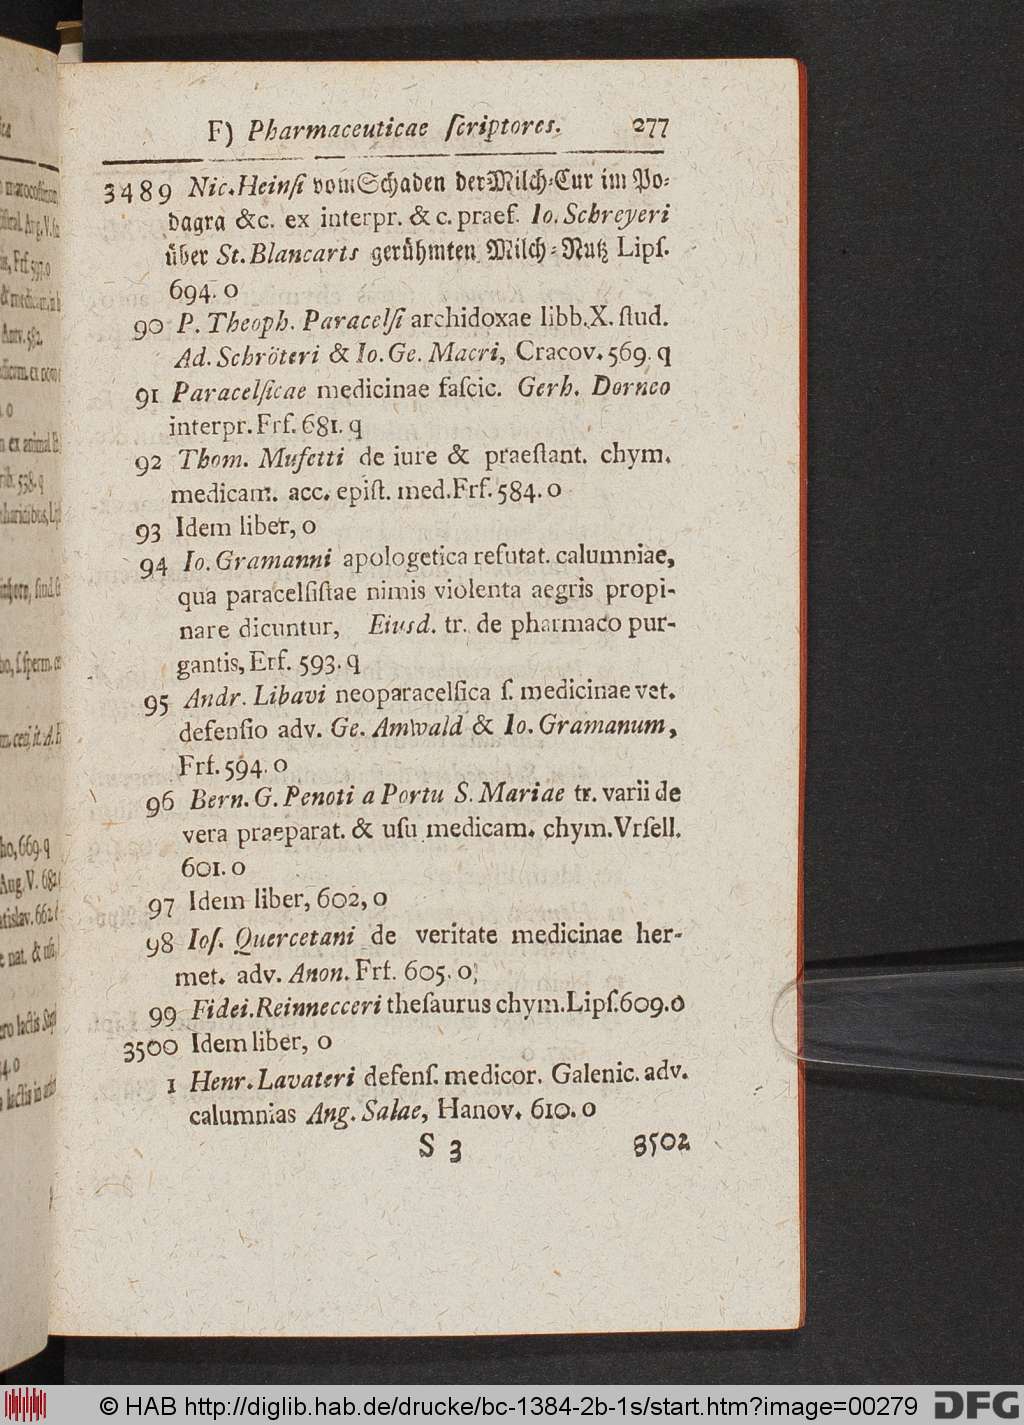 F) Pharmaceuticae ſcriptores. 277
3489 Nic. Heinſi vom Schaden der Milch-Cur im Po-
dagra &c. ex interpr. & c. praef. Io. Schreyeri
über St. Blancarts gerühmten Milch-Nutz Lipſ.
694. o
90 P. Theoph. Paracelſi archidoxae libb. X. ſtud.
Ad. Schröteri & Io. Ge. Macri, Cracov. 569. q
91 Paracelſicae medicinae faſcic. Gerh. Dorneo
interpr. Frf. 681. q
92 Thom. Mufetti de iure & praeſtant. chym.
medicam. acc. epiſt. med. Frf. 584. o
93 Idem liber, o
94 Io. Gramanni apologetica refutat. calumniae,
qua paracelſiſtae nimis violenta aegris propi-
nare dicuntur, Eiusd. tr. de pharmaco pur-
gantis, Erf. 593. q
95 Andr. Libavi neoparacelſica ſ. medicinae vet.
defenſio adv. Ge. Amwald & Io. Gramanum,
Frf. 594. o
96 Bern. G. Penoti a Portu S. Mariae tr. varii de
vera praeparat. & uſu medicam. chym. Vrſell.
601. o
97 Idem liber, 602, o
98 Ioſ. Quercetani de veritate medicinae her-
met. adv. Anon. Frf. 605. o,
99 Fidei. Reinnecceri theſaurus chym. Lipſ. 609. o
3500 Idem liber, o
1 Henr. Lavateri defenſ. medicor. Galenic. adv.
calumnias Ang. Salae, Hanov. 610. o
S 3 3502
© HAB http://diglib.hab.de/drucke/bc-1384-2b-1s/start.htm?image=00279 DFG